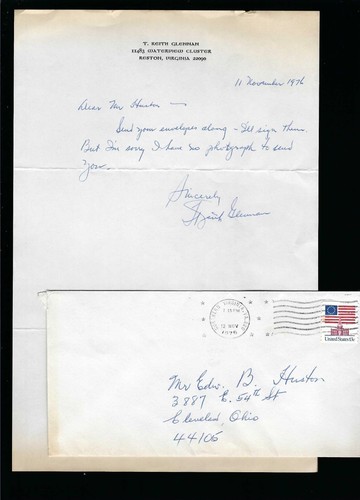 T. KEITH GLENNAN
11483 WATERVIEW CLUSTER
RESTON, VIRGINIA 22090
11 November 1976
Dear Mr Huston —
Send your envelopes along - I'll sign them.
But I'm sorry I have no photograph to send
you.
Sincerely
T Keith Glennan
PM
12 NOV
1976
United States 13c
Mr Edw. B. Huston
3887 E. 54th St
Cleveland, Ohio
44105